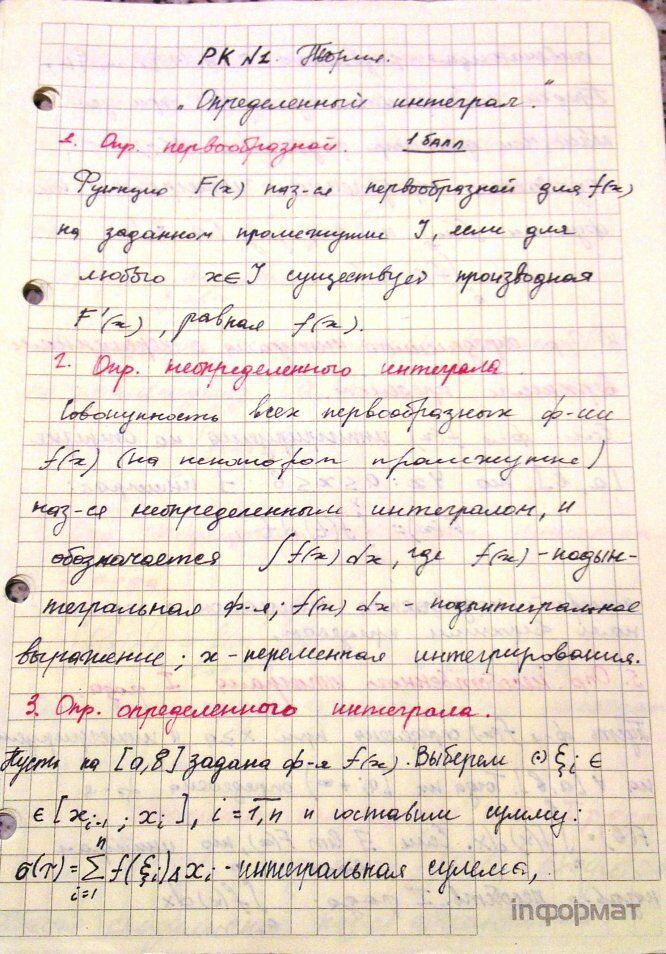 РК №1. Теория.
„Определенный интеграл."
1. Опр. первообразной. 1 балл
Функция F(x) наз-ся первообразной для f(x)
на заданном промежутке J, если для
любого x∈J существует производная
F'(x), равная f(x).
2. Опр. неопределенного интеграла.
Совокупность всех первообразных ф-ии
f(x) (на некотором промежутке)
наз-ся неопределенным интегралом, и
обозначается ∫f(x)dx, где f(x) - подын-
тегральная ф-я; f(x)dx - подынтегральное
выражение; x - переменная интегрирования.
3. Опр. определенного интеграла.
Пусть на [a,b] задана ф-я f(x). Выберем (·) ξi ∈
∈ [xi-1; xi], i = 1,n и составим сумму:
σ(τ) = n∑i=1 f(ξi)Δxi - интегральная сумма,
inформат